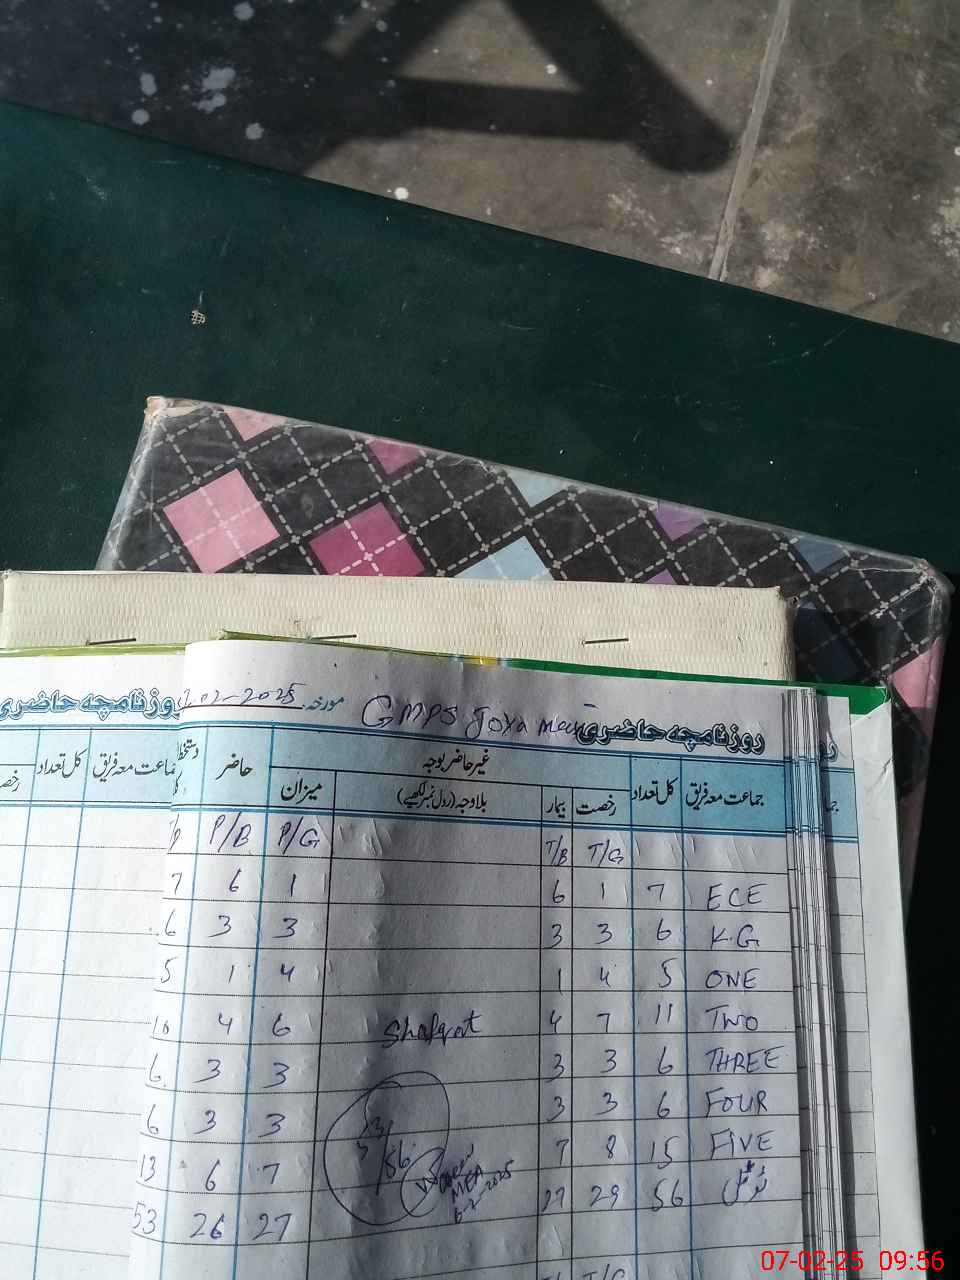 روزنامچہ حاضری
GMPS Joya
مورخہ 7-02-2025
روزنامچہ حاضری
جماعت معہ فریق کل تعداد غیر حاضر بوجہ حاضر دستخط
رخصت بیمار بلا وجہ (رول نمبر لکھیے) میزان
T/G T/B P/G P/B
ECE 7 1 6 1 6 7
K.G 6 3 3 3 3 6
ONE 5 4 1 4 1 5
TWO 11 7 4 Shafqat 6 4 10
THREE 6 3 3 3 3 6
FOUR 6 3 3 3 3 6
FIVE 15 8 7 7 6 13
ٹوٹل 56 29 27 27 26 53
53/56
MEA
6-2-2025
T/G
جماعت معہ فریق کل تعداد
07-02-25 09:56